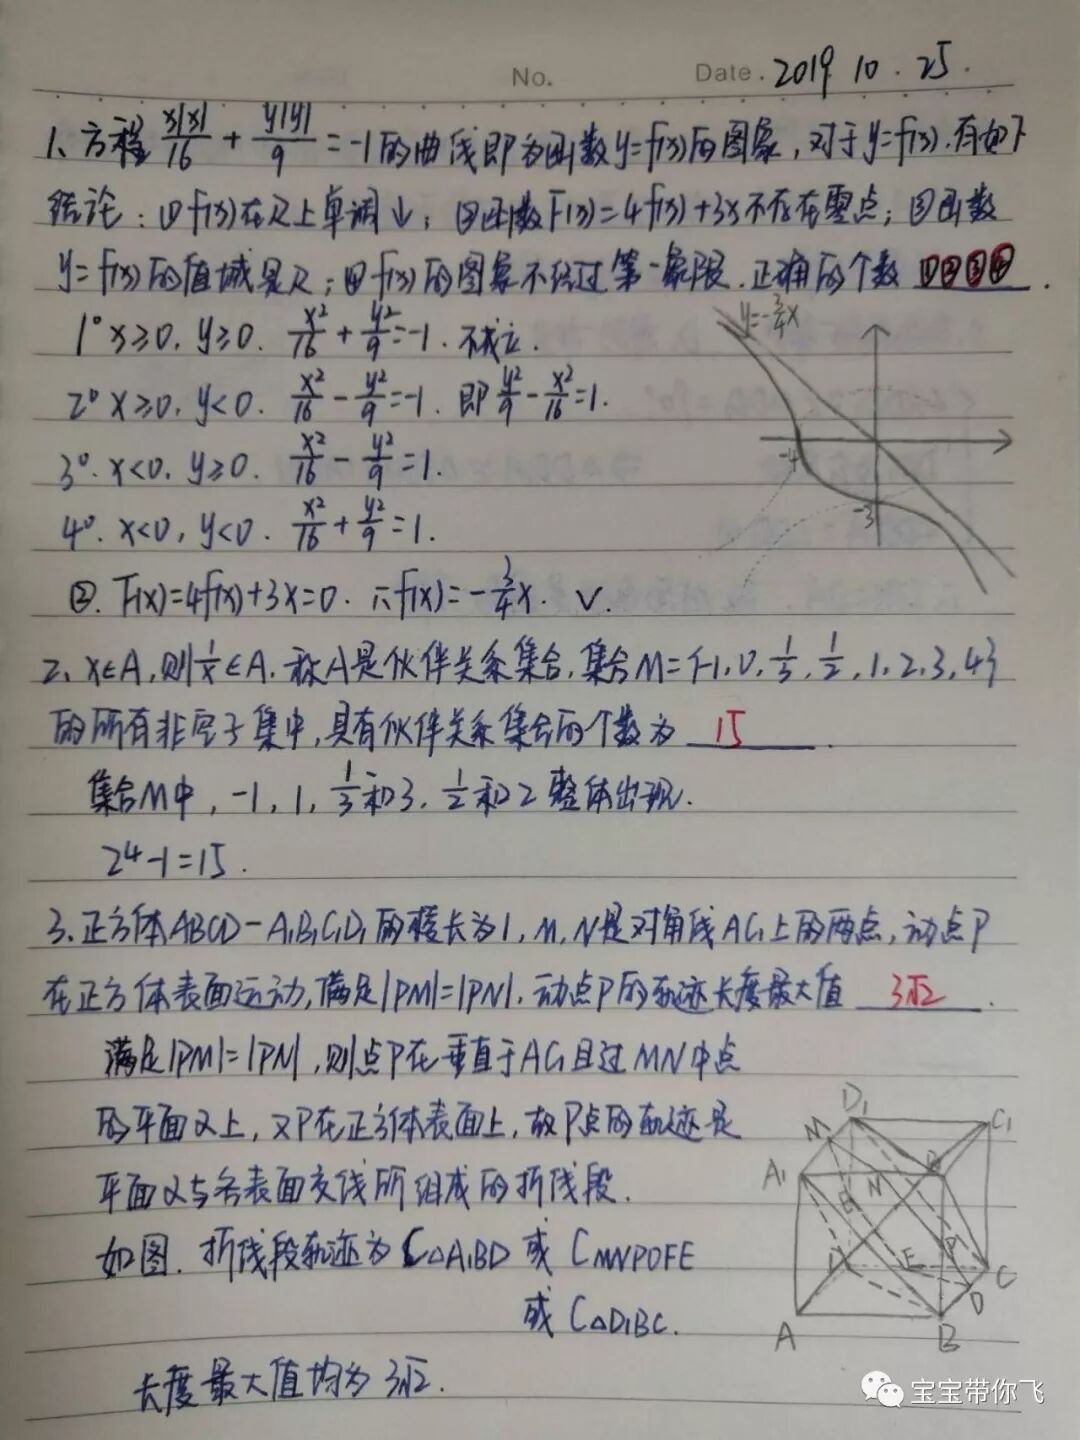 No.
Date. 2019 10. 25.
1、方程 x|x|/16 + y|y|/9 = -1 的曲线即为函数y=f(x)的图象,对于y=f(x).有如下
结论:①f(x)在R上单调↓;②函数F(x)=4f(x)+3x不存在零点;③函数
y=f(x)的值域是R;④f(x)的图象不经过第一象限.正确的个数 ①②③④.
1° x≥0, y≥0. x²/16 + y²/9 = -1. 不成立.
2° x≥0, y<0. x²/16 - y²/9 = -1. 即 y²/9 - x²/16 = 1.
3°. x<0, y≥0. x²/16 - y²/9 = 1.
4°. x<0, y<0. x²/16 + y²/9 = 1.
y=-3/4x
-4
-3
②. F(x)=4f(x)+3x=0. ∴f(x)=-3/4x. √.
2、x∈A,则1/x∈A.称A是伙伴关系集合,集合M={-1,0,1/3,1/2,1,2,3,4}
的所有非空子集中,具有伙伴关系集合的个数为 15.
集合M中,-1,1,1/3和3,1/2和2整体出现.
2⁴-1=15.
3、正方体ABCD-A₁B₁C₁D₁的棱长为1,M,N是对角线AC₁上的两点,动点P
在正方体表面运动,满足|PM|=|PN|.动点P的轨迹长度最大值 3√2.
满足|PM|=|PN|,则点P在垂直于AC₁且过MN中点
的平面α上,又P在正方体表面上,故P点的轨迹是
平面α与各表面交线所组成的折线段.
如图.折线段轨迹为C△A₁BD 或 CMNPOFE
或 C△D₁BC.
长度最大值均为3√2.
D₁
C₁
M
A₁
N
E
C
D
A
B
宝宝带你飞